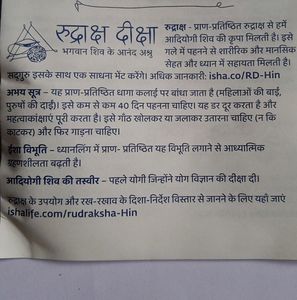 रुद्राक्ष दीक्षा
भगवान शिव के आनंद अश्रु
रुद्राक्ष - प्राण-प्रतिष्ठित रुद्राक्ष से हमें
आदियोगी शिव की कृपा मिलती है। इसे
गले में पहनने से शारीरिक और मानसिक
सेहत और ध्यान में सहायता मिलती है।
सद्गुरु इसके साथ एक साधना भेंट करेंगे। अधिक जानकारी: isha.co/RD-Hin
अभय सूत्र – यह प्राण-प्रतिष्ठित धागा कलाई पर बांधा जाता है (महिलाओं की बाईं,
पुरुषों की दाईं)। इसे कम से कम 40 दिन पहनना चाहिए। यह डर दूर करता है और
महत्वाकांक्षाएं पूरी करता है। इसे गाँठ खोलकर या जलाकर उतारना चाहिए (न कि
काटकर) और फिर गाड़ना चाहिए।
ईशा विभूति – ध्यानलिंग में प्राण- प्रतिष्ठित यह विभूति लगाने से आध्यात्मिक
ग्रहणशीलता बढ़ती है।
आदियोगी शिव की तस्वीर – पहले योगी जिन्होंने योग विज्ञान की दीक्षा दी।
रुद्राक्ष के उपयोग और रख-रखाव के दिशा-निर्देश विस्तार से जानने के लिए यहाँ जाएं
ishalife.com/rudraksha-Hin